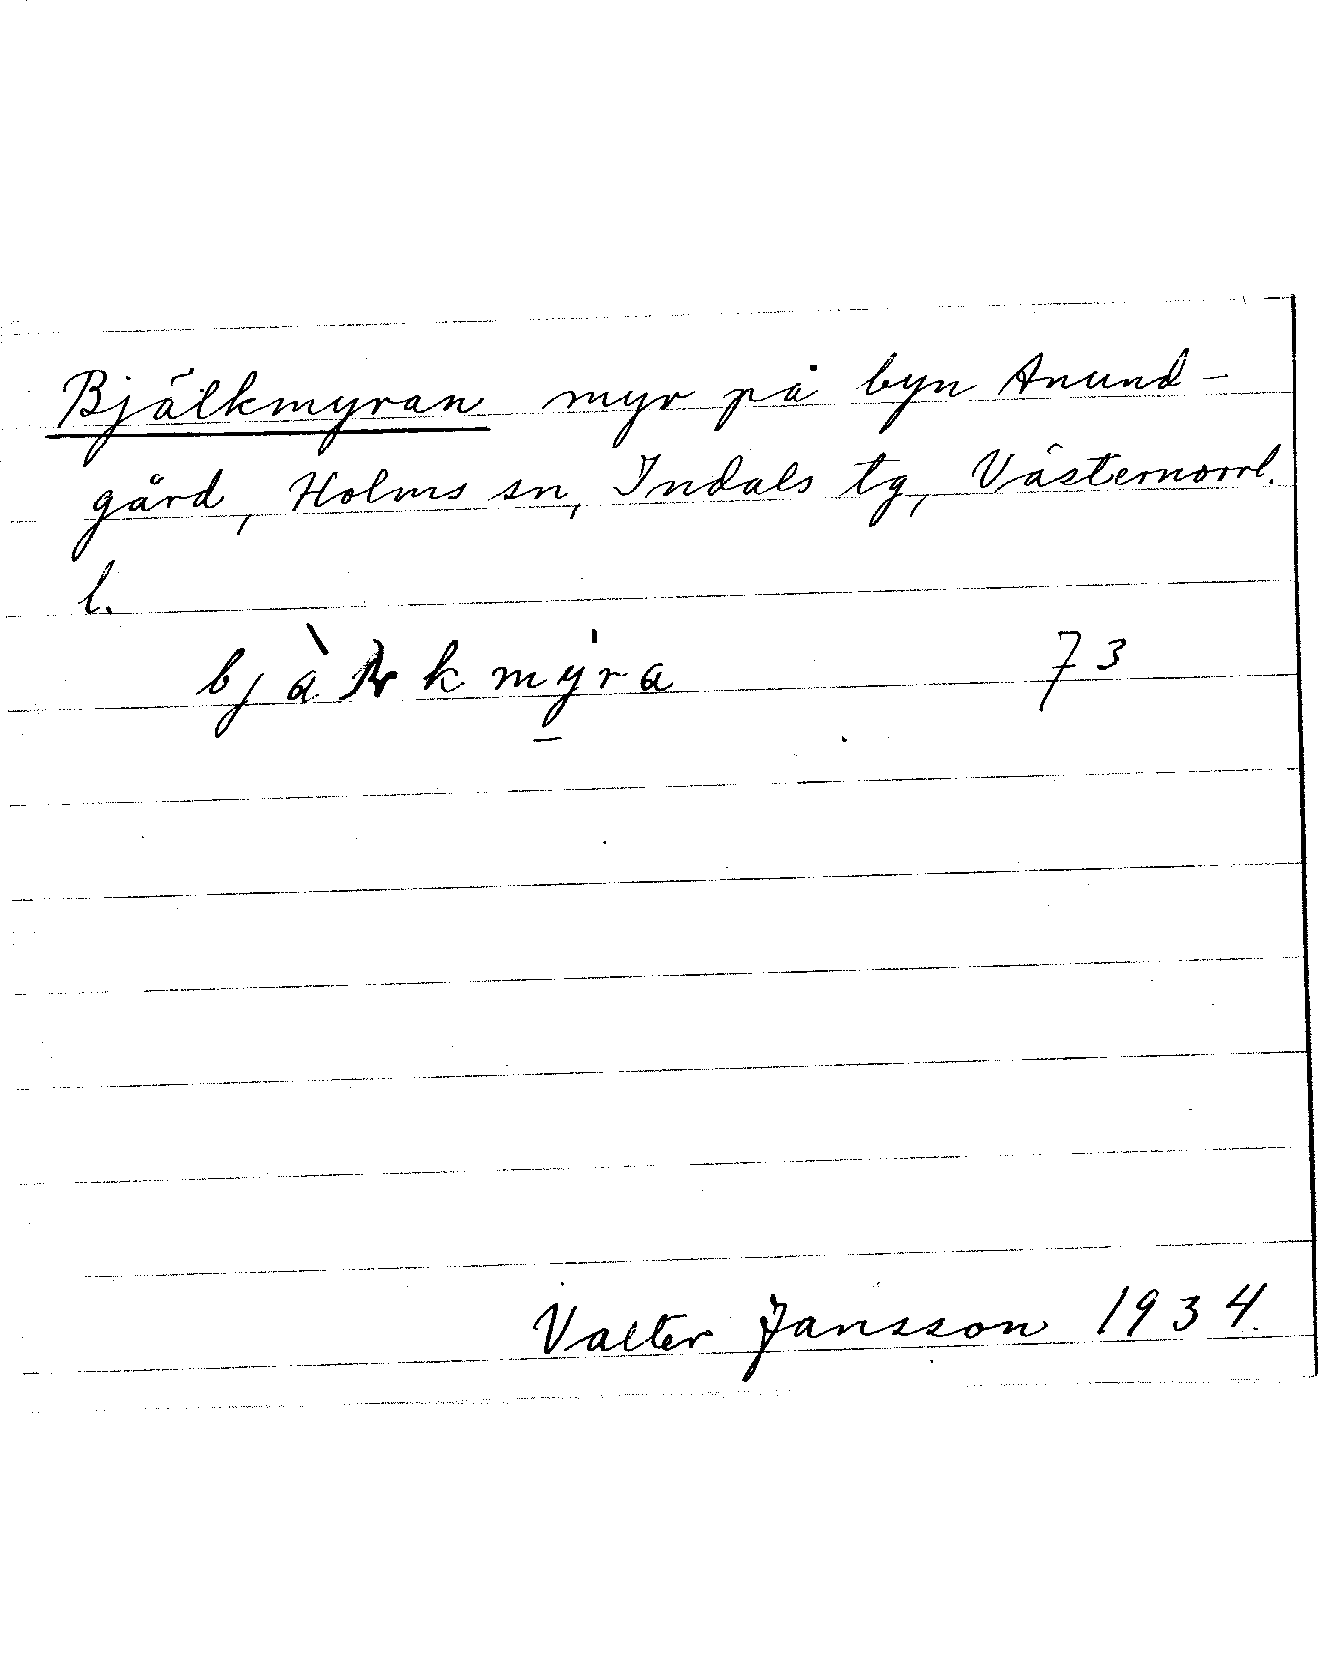 Bjälkmyran myr på byn Anund-
gård, Holms sn, Indals tg, Västernorrl.
l.
73
Valter Jansson 1934.